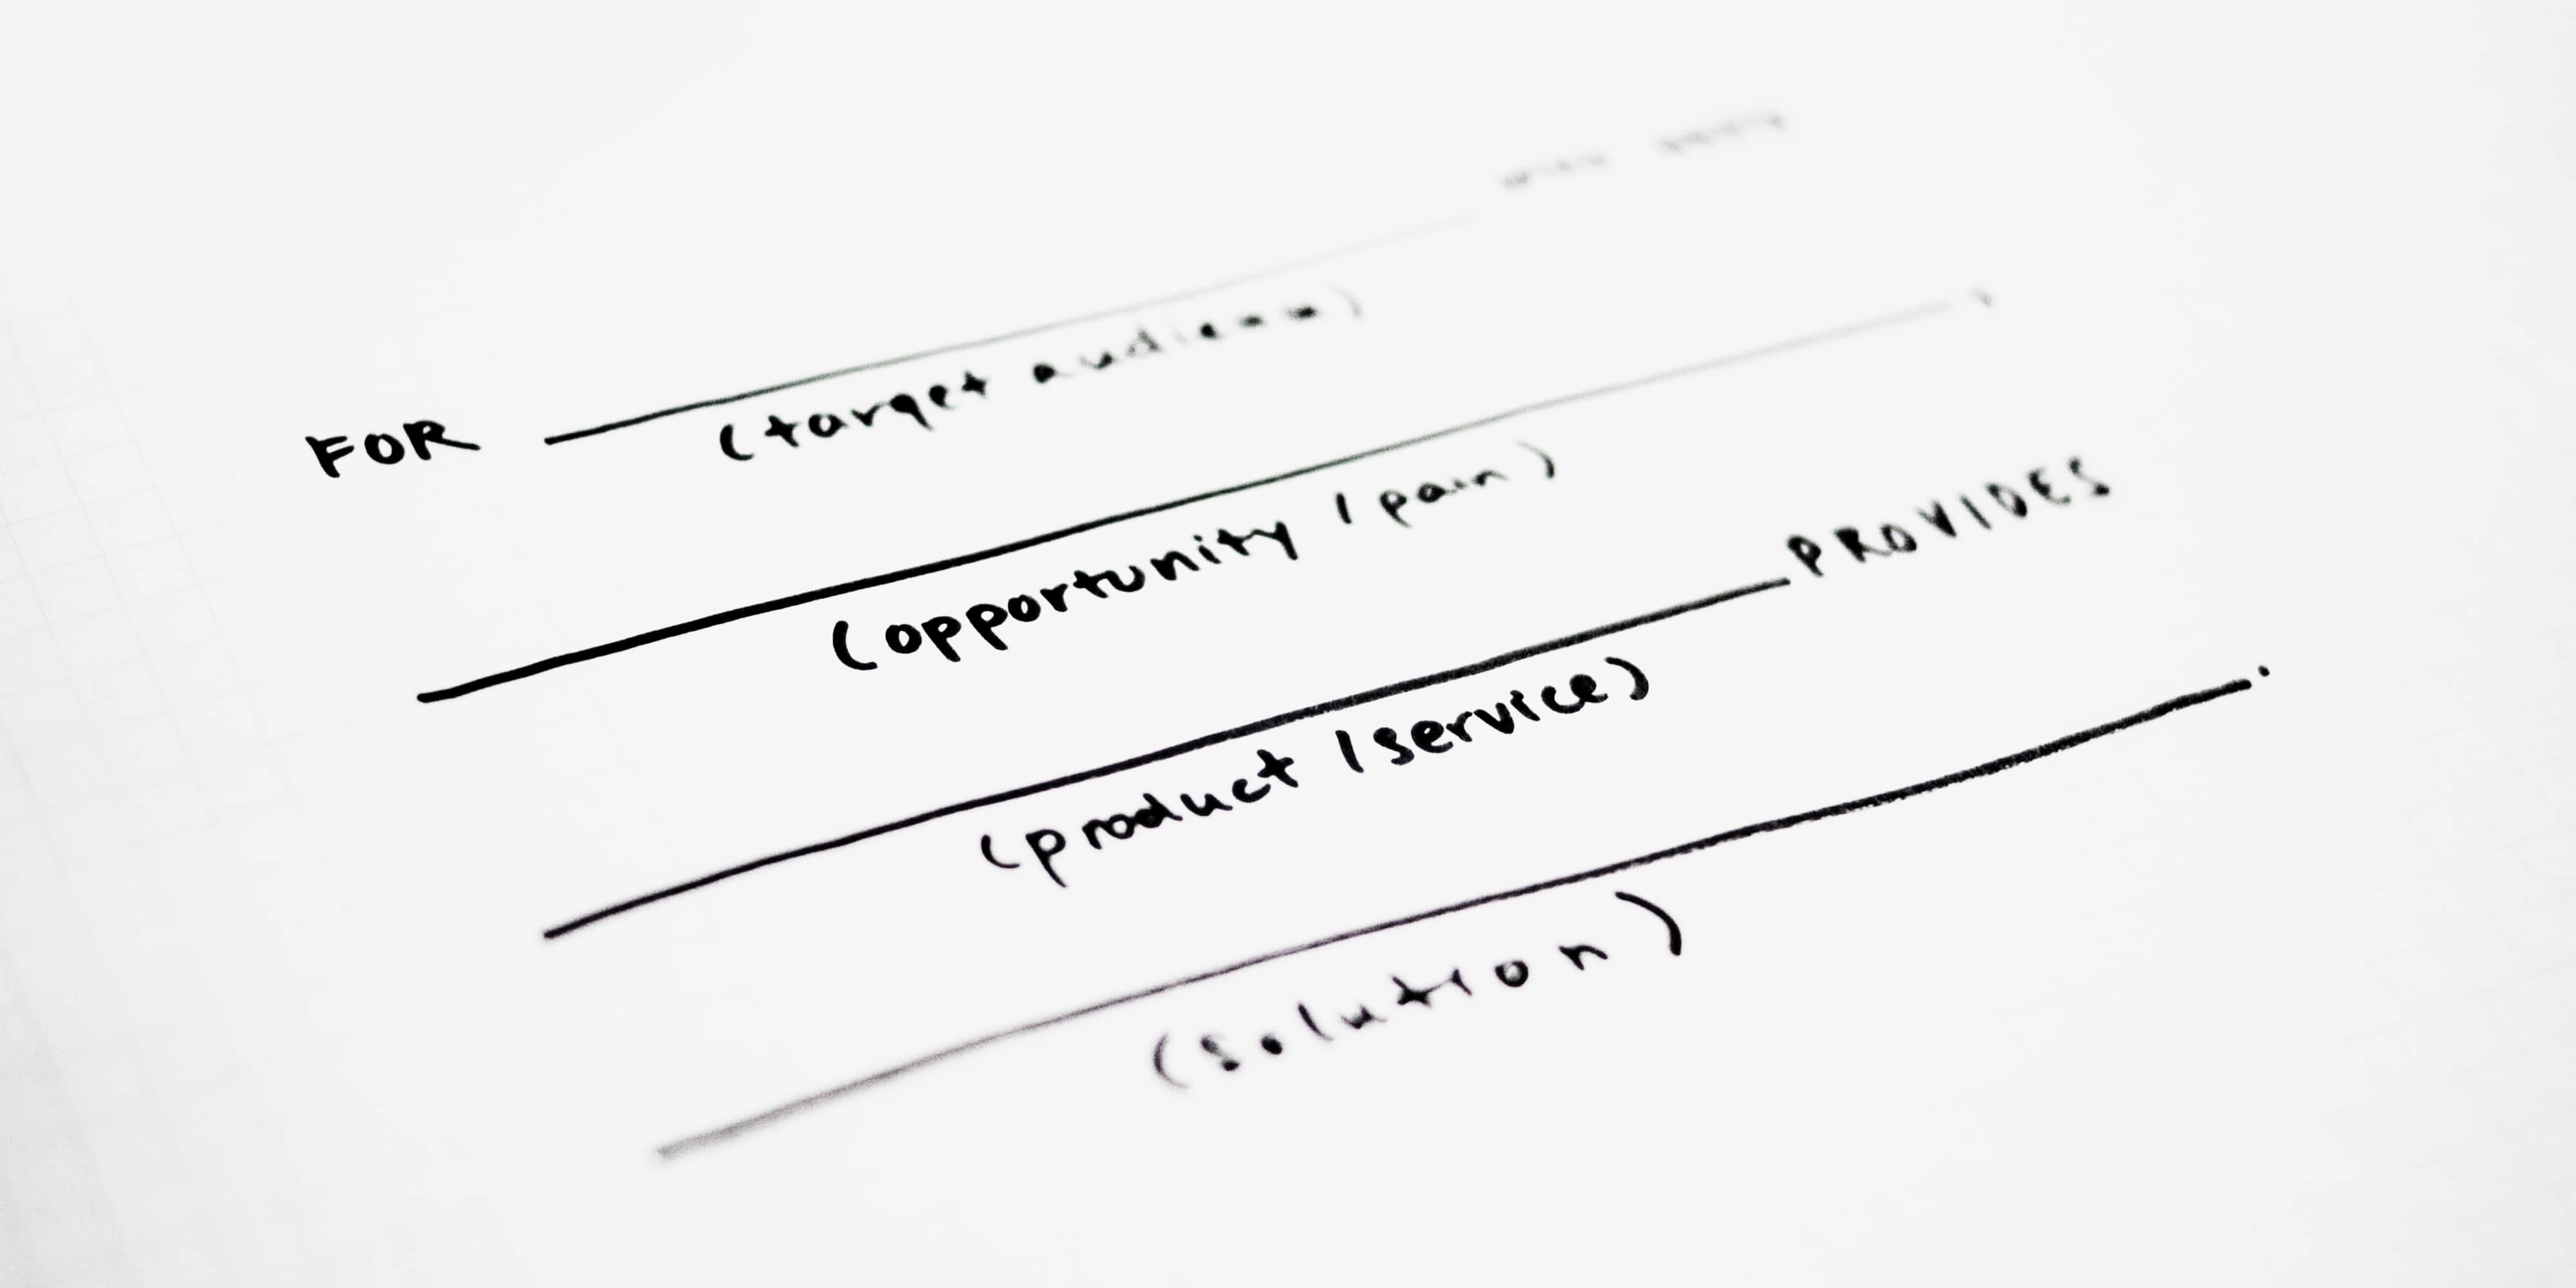 FOR
(target audience)
(opportunity / pain)
PROVIDES
(product / service)
(solution)